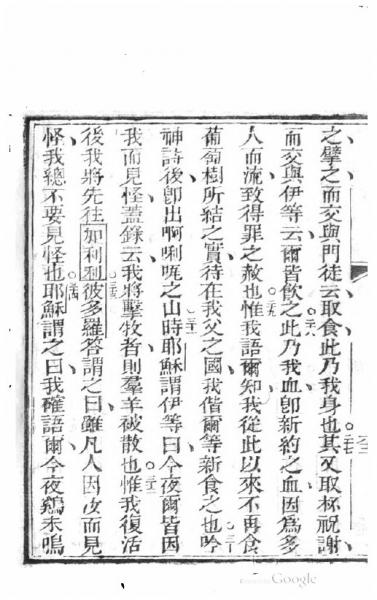 之擘之而交與門徒云取食此乃我身也其又取杯祝謝
而交與伊等云爾皆飲之此乃我血卽新約之血因為多
人而流致得罪之赦也惟我語爾知我從此以來不再食
葡萄樹所結之實待在我父之國我偕爾等新食之也吟
神詩後卽出啊唎𠺕之山時耶穌謂伊等曰今夜爾皆因
我而見怪蓋錄云我將擊牧者則羣羊被散也惟我復活
後我將先往加利利彼多羅答謂之曰雖凡人因汝而見
怪我總不要見怪也耶穌謂之曰我確語爾今夜鷄未鳴
Google